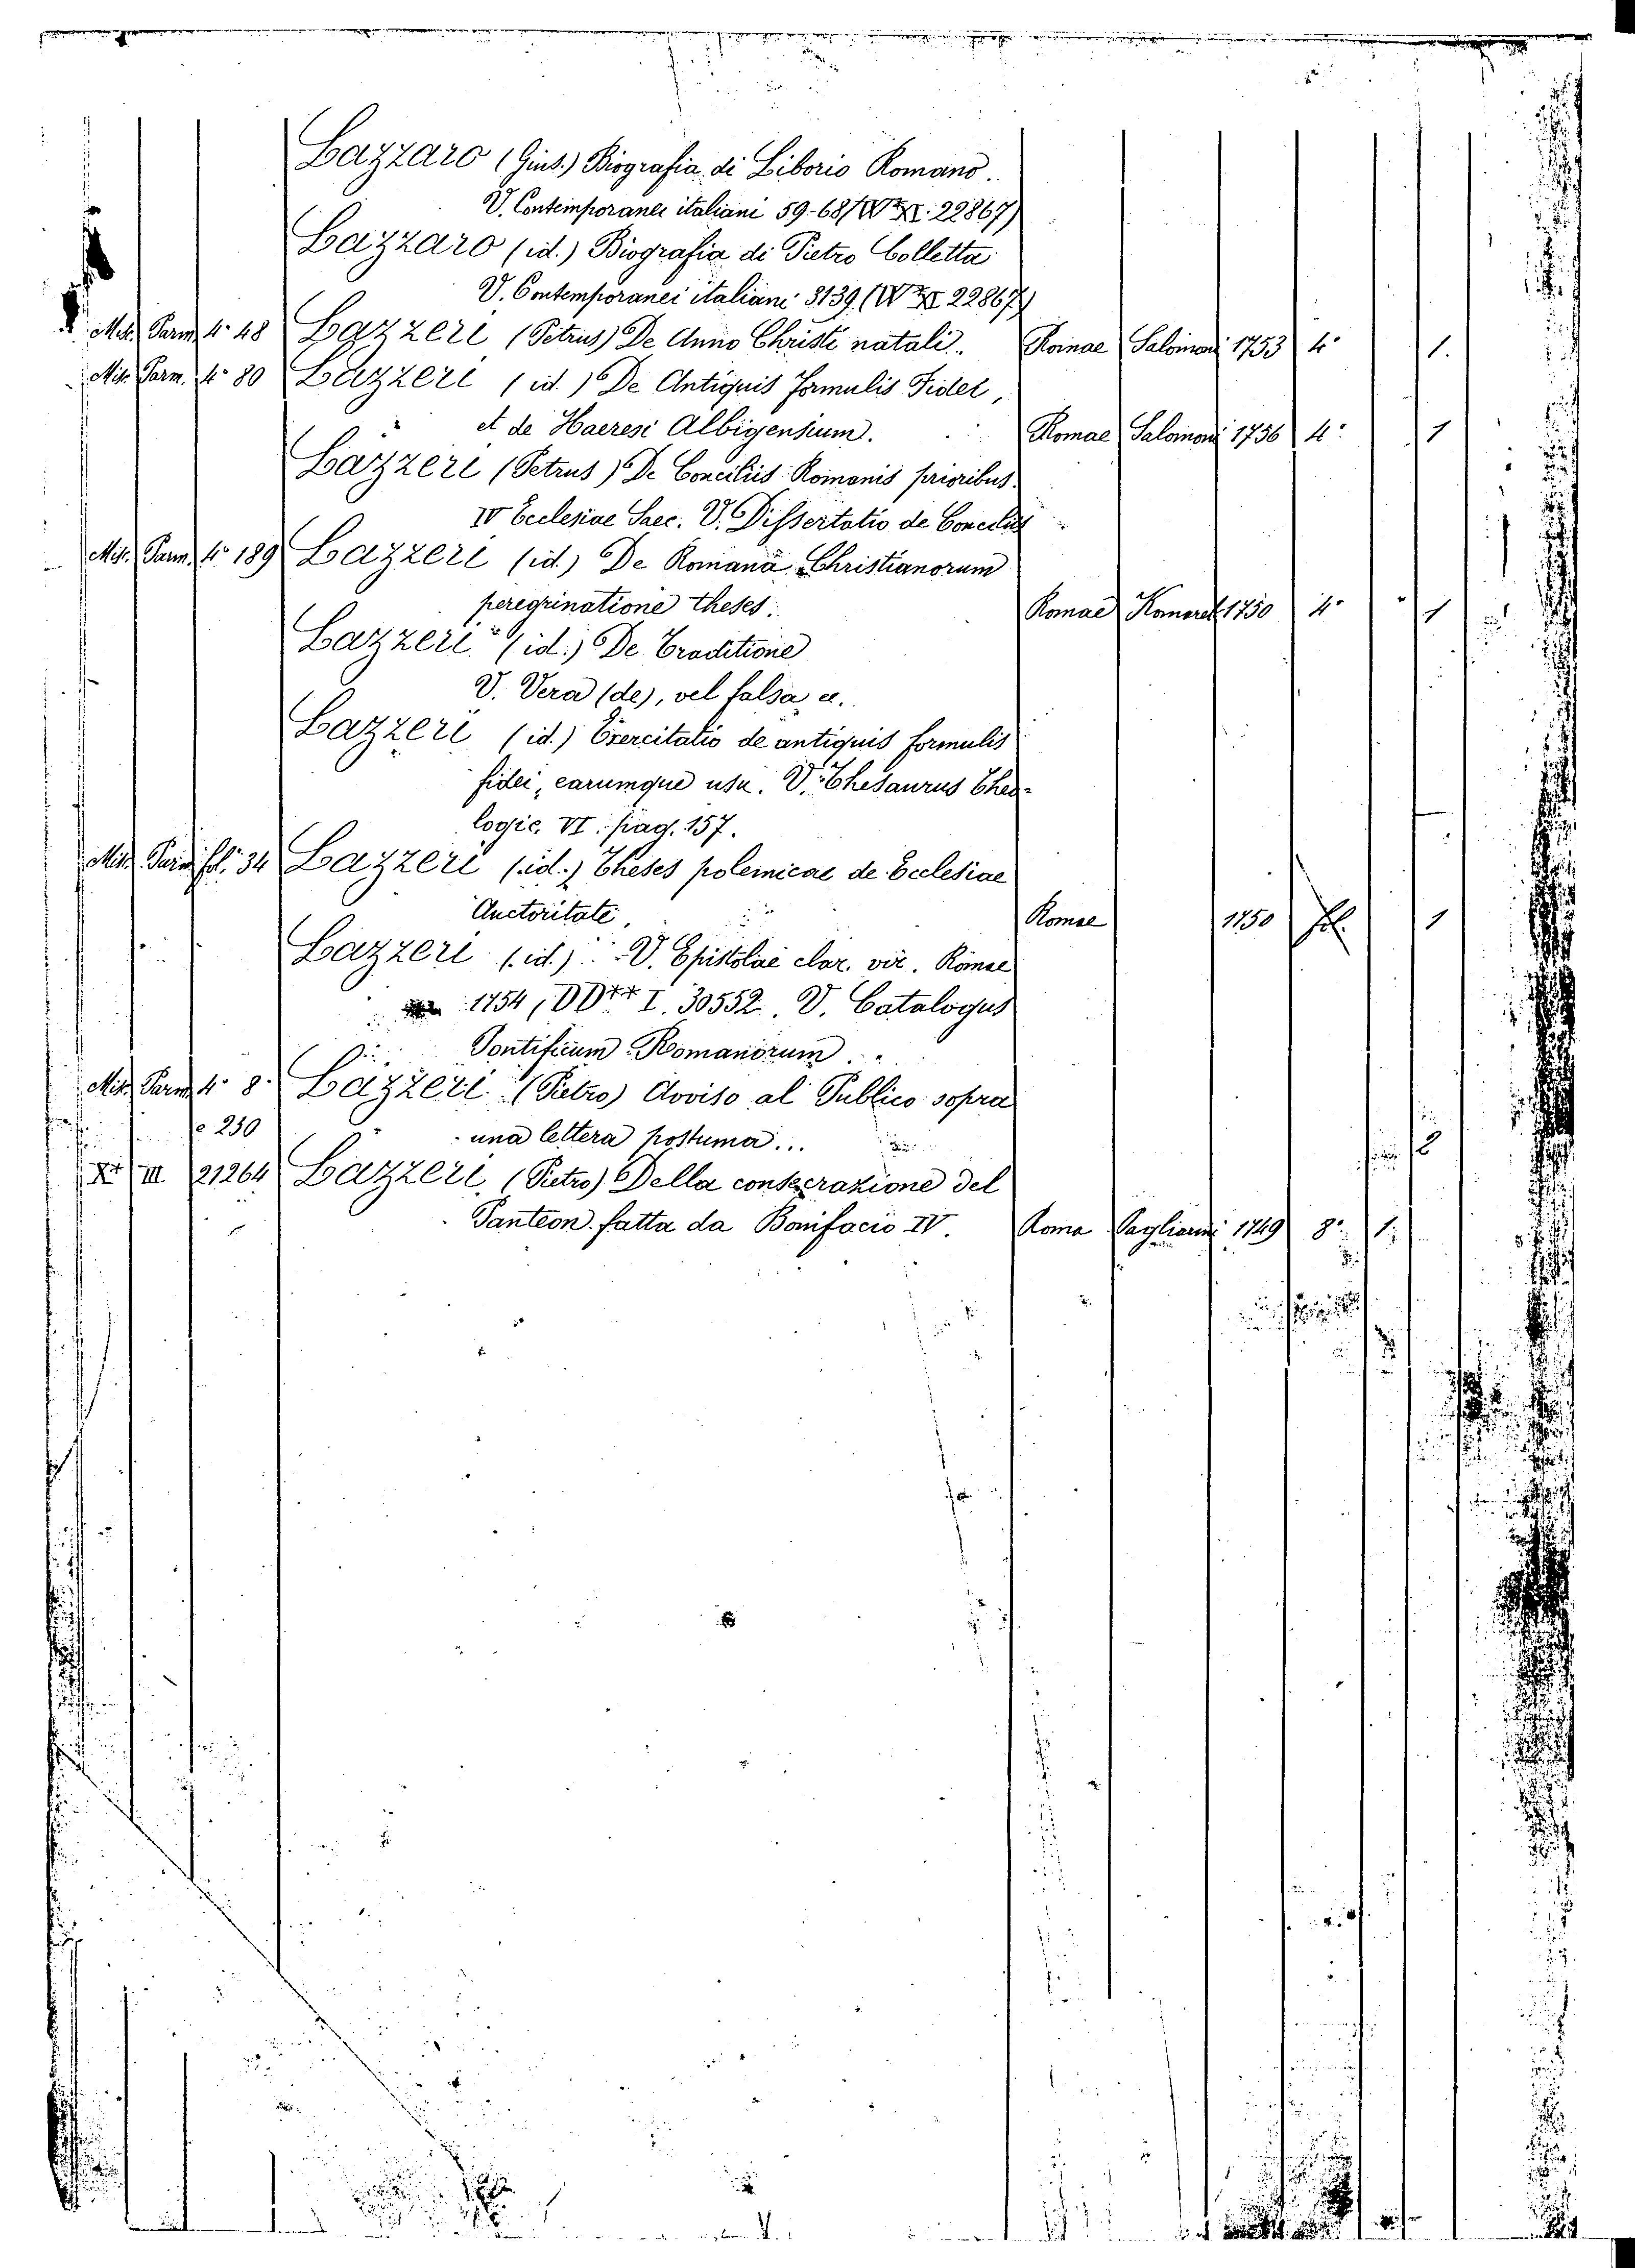 Lazzaro (Gius.) Biografia di Liborio Romano.
V. Contemporanei italiani 59-68 22867)
Lazzaro (id.) Biografia di Pietro Colletta
V. Contemporanei italiani 3139 22867)
Misc. Parm. 4° 48 Lazzeri (Petrus) De Anno Christi natali.. Romae Salomoni 1753 4° 1.
Misc. Parm. 4° 80 Lazzeri (id.) De Antiquis Formulis Fidei,
et de Haeresi Albigensium. Romae Salomoni 1756 4° 1
Lazzeri (Petrus) De Conciliis Romanis prioribus
IV Ecclesiae Saec. V. Dissertatio de Conciliis
Misc. Parm. 4° 189 Lazzeri (id.) De Romana Christianorum
peregrinatione theses. Romae Komarek 1750 4° 1
Lazzeri (id.) De Traditione
V. Vera (de), vel falsa
Lazzeri (id.) Exercitatio de antiquis formulis
fidei, earumque usu. V. Thesaurus Theo-
logic. VI. pag. 157.
Misc. Parm fol. 34 Lazzeri (id.) Theses polemicae de Ecclesiae
Auctoritate, Romae 1750 fol. 1
Lazzeri (id.) V. Epistolae clar. vir. Romae
1754, DD** I. 30552. V. Catalogus
Pontificum Romanorum.
Misc. Parm 4° 8 Lazzeri (Pietro) Avviso al Publico sopra
e 230 una lettera postuma... 2
X* III 21264 Lazzeri (Pietro) Della consecrazione del
Panteon fatta da Bonifacio IV. Roma Pagliarini 1749 8° 1.